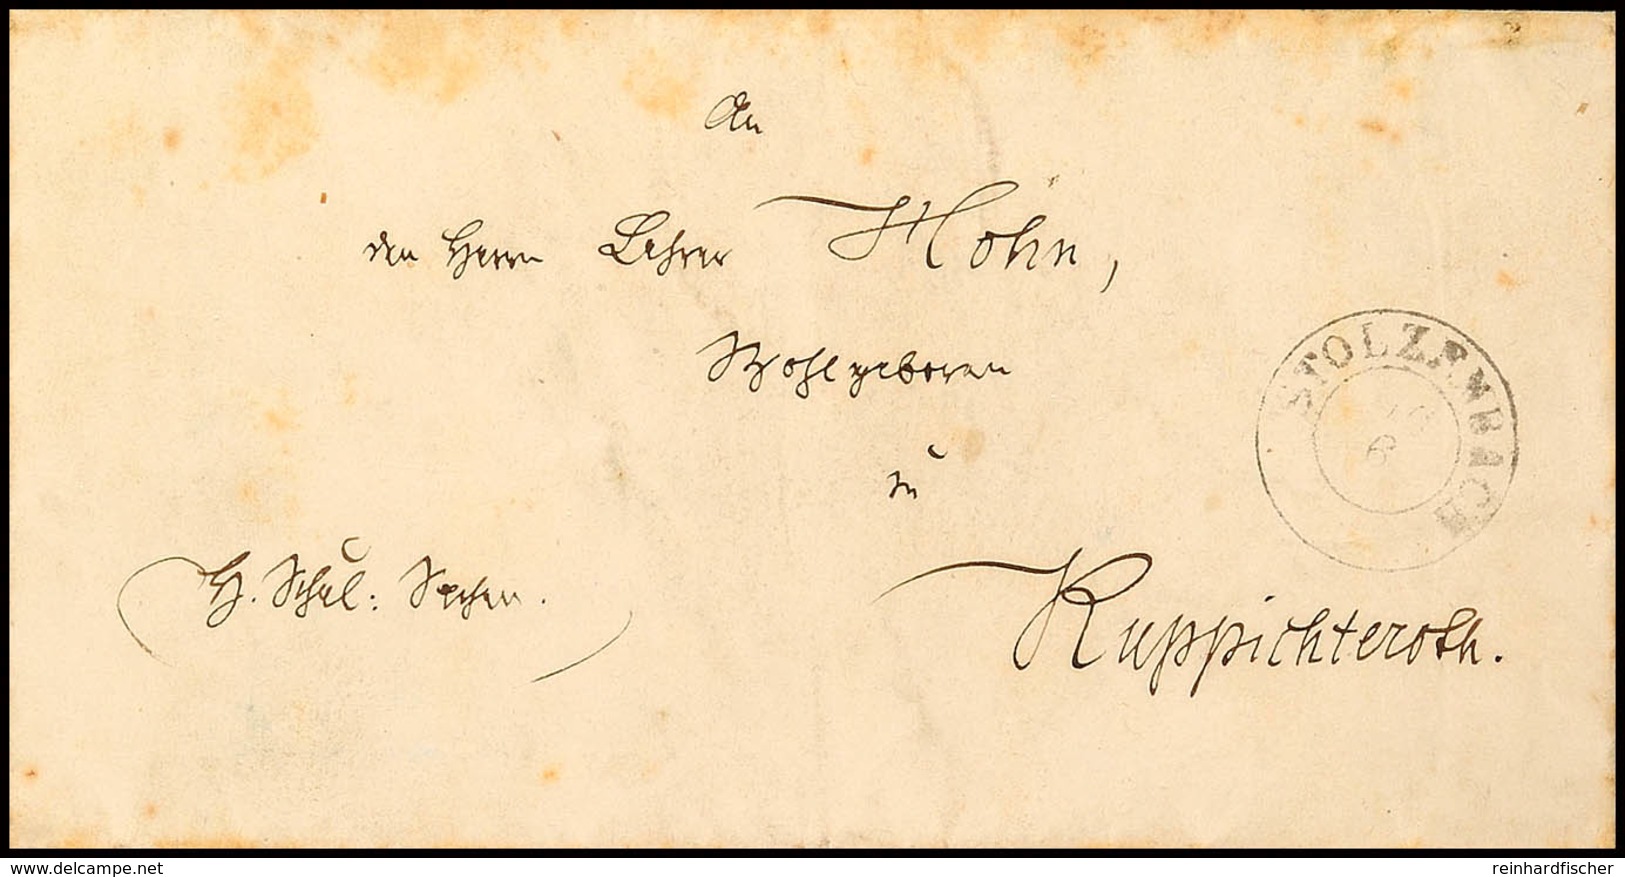 An
den Herrn Lehrer Hohn,
Wohlgeboren
zu
STOLZENBACH
6
H. Schul: Sachen.
Ruppichteroth.
akpool.co.uk
reinhardfischer